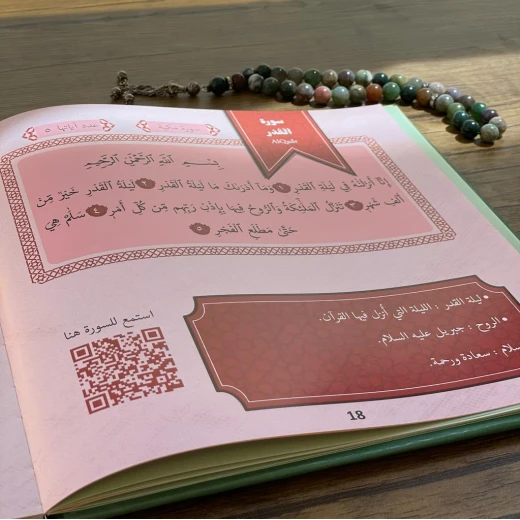 سورة
القدر
عدد آياتها ٥
سورة مكية
بِسْمِ اللَّهِ الرَّحْمَٰنِ الرَّحِيمِ
إِنَّا أَنزَلْنَاهُ فِي لَيْلَةِ الْقَدْرِ ١ وَمَا أَدْرَاكَ مَا لَيْلَةُ الْقَدْرِ ٢ لَيْلَةُ الْقَدْرِ خَيْرٌ مِّنْ
أَلْفِ شَهْرٍ ٣ تَنَزَّلُ الْمَلَائِكَةُ وَالرُّوحُ فِيهَا بِإِذْنِ رَبِّهِم مِّن كُلِّ أَمْرٍ ٤ سَلَامٌ هِيَ
حَتَّىٰ مَطْلَعِ الْفَجْرِ ٥
• ليلة القدر : الليلة التي أنزل فيها القرآن.
• الروح : جبريل عليه السلام.
سلام : سعادة ورحمة.
استمع للسورة هنا
18